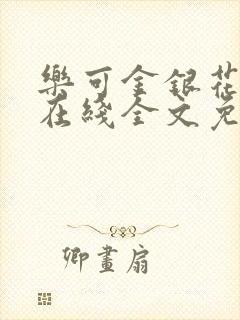 樂可金銀花
在綫全文免
卿畫扇